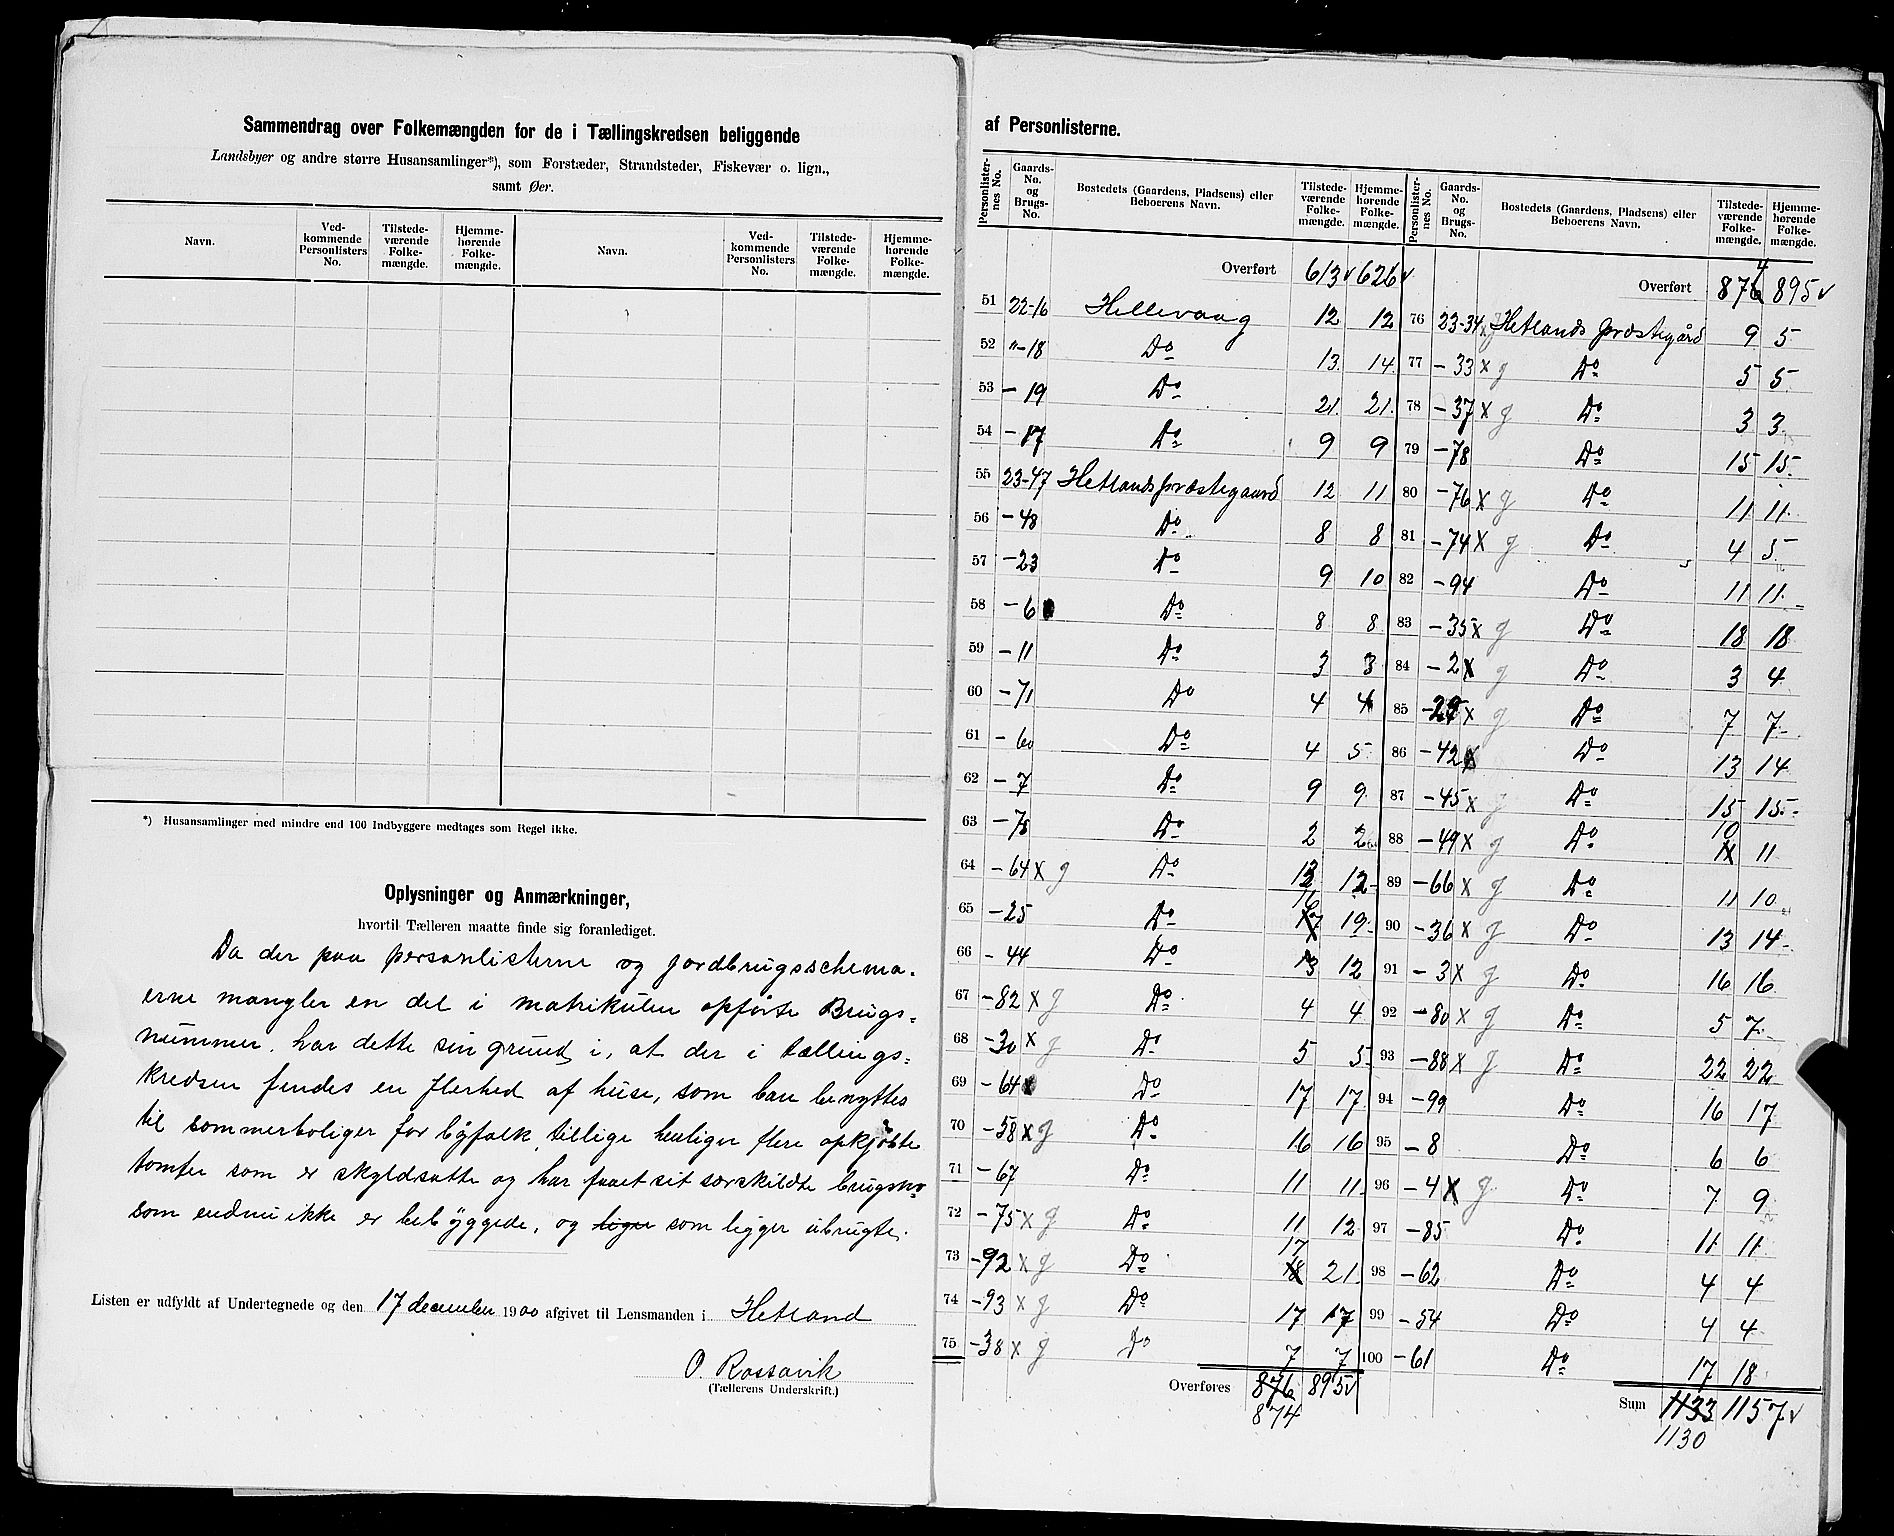 Sammendrag over Folkemængden for de i Tællingskredsen beliggende
Landsbyer og andre større Husansamlinger*), som Forstæder, Strandsteder, Fiskevær o. lign.,
samt Øer.
Navn. Ved-kommende Personlisters No. Tilstede-værende Folke-mængde. Hjemme-hørende Folke-mængde. Navn. Ved-kommende Personlisters No. Tilstede-værende Folke-mængde. Hjemme-hørende Folke-mængde.
*) Husansamlinger med mindre end 100 Indbyggere medtages som Regel ikke.
Oplysninger og Anmærkninger,
hvortil Tælleren maatte finde sig foranlediget.
Da der paa personlisterne og jordbrugsschema-
erne mangler en del i matrikulen opførte Brugs-
nummer, har dette sin grund i, at der i tællings-
kredsen findes en flerhed af huse, som bare benyttes
til sommerboliger for byfolk, tillige henligger flere opkjøbte
tomter som er skyldsatte og har faaet sit særskildte brugsno
som endnu ikke er bebyggede, og ligger som ligger ubrugte.
Listen er udfyldt af Undertegnede og den 17 december 1900 afgivet til Lensmanden i Hetland
O. Rossavik
(Tællerens Underskrift.)
af Personlisterne.
Personlister-nes No. Gaards-No. og Brugs-No. Bostedets (Gaardens, Pladsens) eller Beboerens Navn. Tilstede-værende Folke-mængde. Hjemme-hørende Folke-mængde. Personlister-nes No. Gaards-No. og Brugs-No. Bostedets (Gaardens, Pladsens) eller Beboerens Navn. Tilstede-værende Folke-mængde. Hjemme-hørende Folke-mængde.
Overført 613 v 626 v Overført 876 4 895 v
51 22-16 Hillevaag 12 12 76 23-34 x Hetlands præstegård 9 5
52 "-18 Do 13 14 77 -33 x g Do 5 5
53 -19 Do 21 21 78 -37 x g Do 3 3
54 -17 Do 9 9 79 -78 Do 15 15
55 23-47 Hetlands præstegaard 12 11 80 -76 x g Do 11 11
56 -48 Do 8 8 81 -74 x g Do 4 5
57 -23 Do 9 10 82 -94 Do 11 11
58 -6 Do 8 8 83 -35 x g Do 18 18
59 -11 Do 3 3 84 -2 x g Do 3 4
60 -71 Do 4 4 85 x g Do 7 7
61 -60 Do 4 5 86 -42 x Do 13 14
62 -7 Do 9 9 87 -45 x g Do 15 15
63 Do 2 2 88 -49 x g Do 10 11 11
64 -64 x g Do 12 12 89 -66 x g Do 11 10
65 -25 Do 16 17 19 90 -36 x g Do 13 14
66 -44 Do 13 12 91 -3 x g Do 16 16
67 -82 x g Do 4 4 92 -80 x g Do 5 7
68 -30 x g Do 5 5 93 -88 x g Do 22 22
69 -64 Do 17 17 94 -99 Do 16 17
70 -58 x g Do 16 16 95 -8 Do 6 6
71 -67 Do 11 11 96 -4 x g Do 7 9
72 -75 x g Do 11 12 97 -85 Do 11 11
73 -92 x g Do 17 18 21 98 -62 Do 4 4
74 -93 x g Do 17 17 99 -54 Do 4 4
75 -38 x g Do 7 7 100 -61 Do 17 18
Overføres 876 895 v Sum 1133 1157 v
874 1130